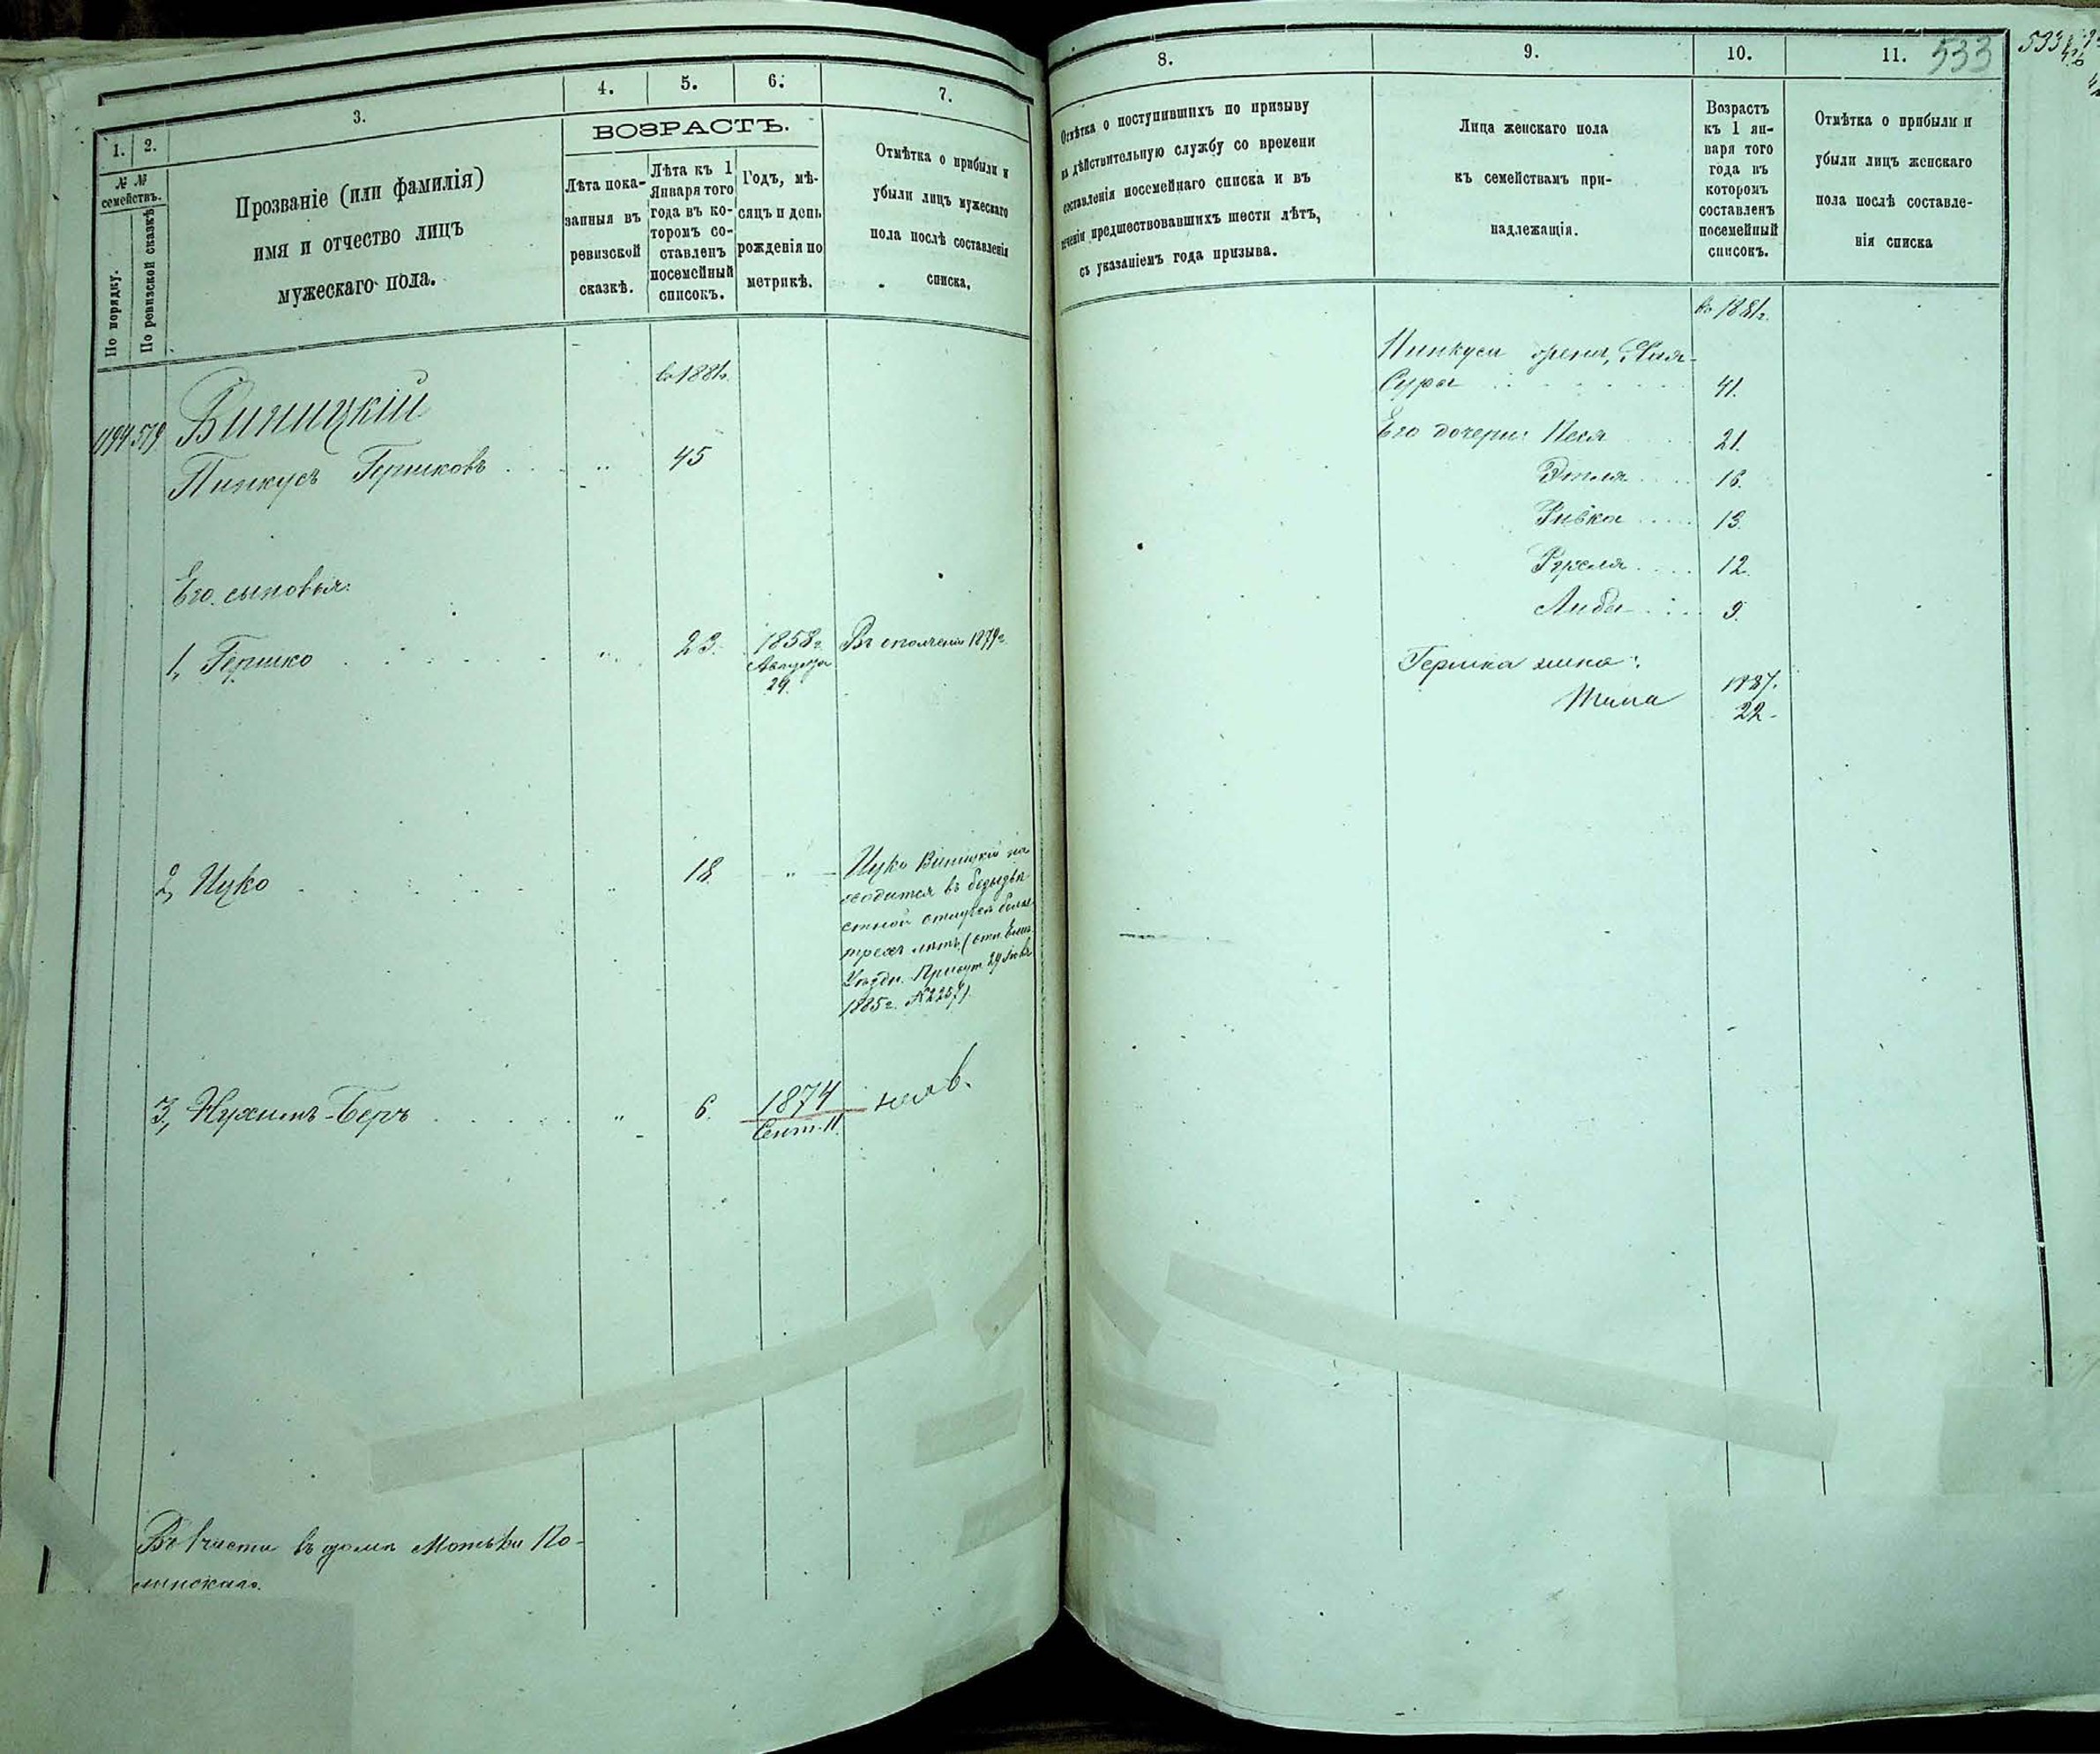 1.
2.
3.
4.
5.
6.
7.
№ №
семействъ.
По порядку.
По ревизской сказкѣ
Прозваніе (или фамилія)
имя и отчество лицъ
мужескаго пола.
ВОЗРАСТЪ.
Лѣта пока-
занныя въ
ревизской
сказкѣ.
Лѣта къ 1
Января того
года въ ко-
торомъ со-
ставленъ
посемейный
списокъ.
Годъ, мѣ-
сяцъ и день
рожденія по
метрикѣ.
Отмѣтка о прибыли и
убыли лицъ мужескаго
пола послѣ составленія
списка.
въ 1881г.
1194 579 Виницкій
Пинкусъ Гершковъ 45
Его сыновья:
1, Гершко 23. 1858г. Въ ополченіи 1879г.
Августа
29.
2, Ицко 18. Ицко Виницкій на
ходится въ безызвѣ
стной отлучкѣ болѣе
трехъ лѣтъ (отн.
Уѣздн. Присут. 29
1885г. №2257).
3, Нухимъ-Беръ 6. 1874 неяв.
Сент. 11
Въ части въ домѣ Мотьки По-
линскаго.
8.
9.
10.
11.
533
533
Отмѣтка о поступившихъ по призыву
на дѣйствительную службу со времени
составленія посемейнаго списка и въ
теченіи предшествовавшихъ шести лѣтъ,
съ указаніемъ года призыва.
Лица женскаго пола
къ семействамъ при-
надлежащія.
Возрастъ
къ 1 ян-
варя того
года въ
которомъ
составленъ
посемейный
списокъ.
Отмѣтка о прибыли и
убыли лицъ женскаго
пола послѣ составле-
нія списка
въ 1881г.
Пинкуса жена,
Сура 41.
Его дочери: Песя 21.
Этля 16.
Ривка 13.
Рухля 12.
Либа 9.
Гершка жена: 1887.
22